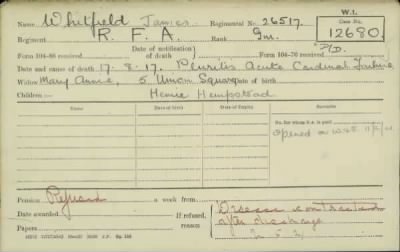 W.I.
Name Whitfield James Regimental No. 26517. Case No.
Regiment R. F. A. Rank Gnr. 12680.
Date of notification P/D.
Form 104-88 received Form 104-76 received
Date and cause of death 17.8.17. Pleuritis Acute Cardinal
Widow Mary Annie, 5 Union Square Date of birth
Children:— Hemel Hempstead
Name Date of Birth Date of Expiry Remarks
For whom S.A. is paid
Opened on
Pension Refused a week from Disease contracted
Date awarded If refused, reason after discharge
Papers